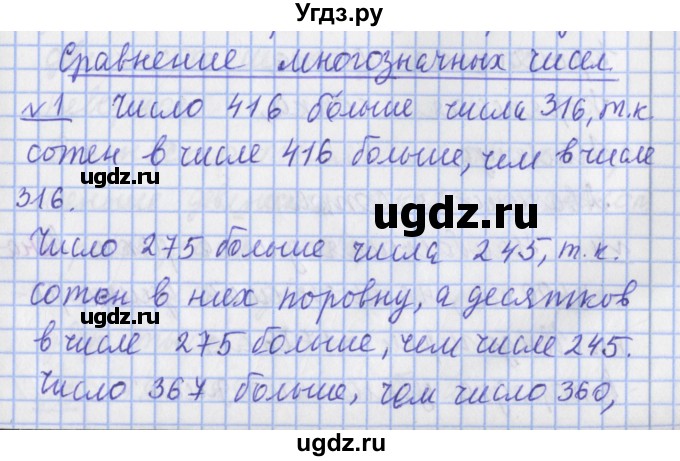 Угдз.ру
Сравнение многозначных чисел.
№1 Число 416 больше числа 316, т.к
сотен в числе 416 больше, чем в числе
316.
ugdz.ru
ugdz.ru
ugdz.ru
Число 275 больше числа 245, т.к.
сотен в них поровну, а десятков
ugdz.ru
ugdz.ru
в числе 275 больше, чем числе 245.
Число 367 больше, чем число 360,
ugdz.ru